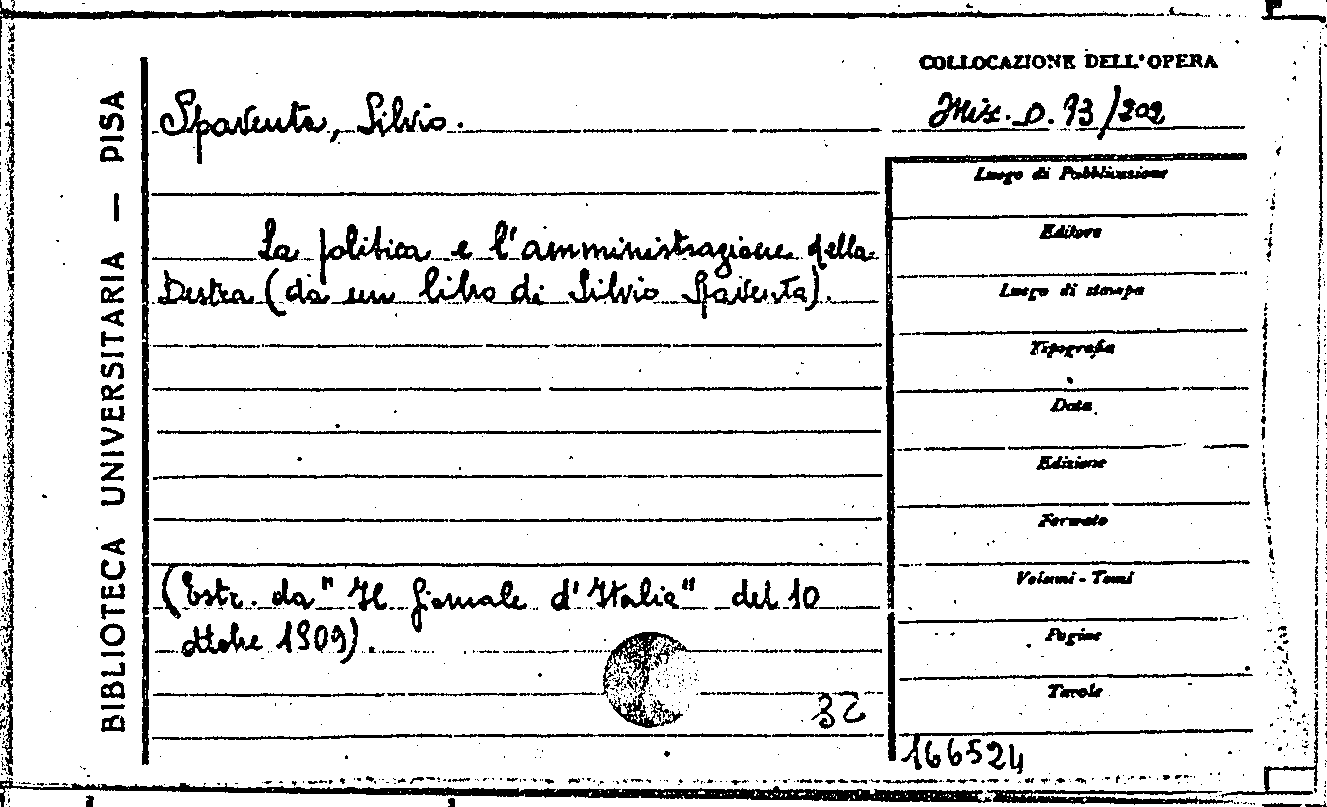 BIBLIOTECA UNIVERSITARIA — PISA
COLLOCAZIONE DELL'OPERA
Spaventa, Silvio.
Mis. D. 93/202
Luogo di Pubblicazione
La politica e l'amministrazione della
Destra (da un libro di Silvio Spaventa).
Editore
Luogo di stampa
Tipografia
Data
Edizione
Formato
Volumi - Tomi
(Estr. da "Il Giornale d'Italia" del 10
ottobre 1909).
Pagine
Tavole
32
166524